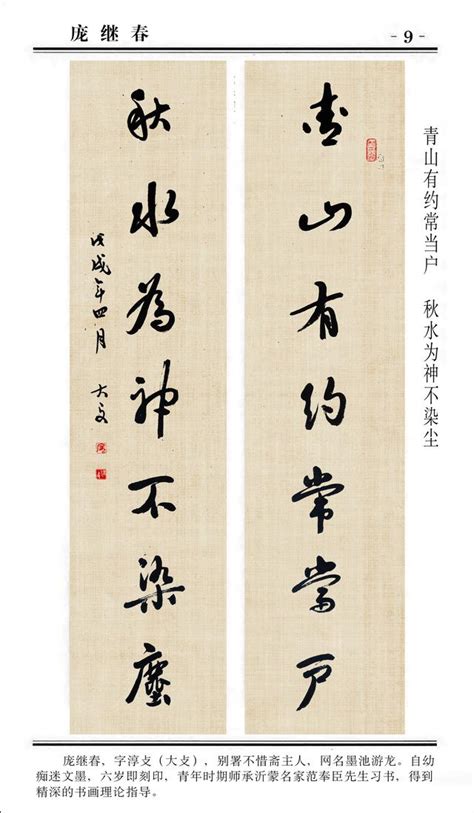 庞继春
- 9 -
青山有约常当户 秋水为神不染尘
青山有約常當戶
秋水為神不染塵
戊戌年四月 大攴
庞继春，字淳攴（大攴），别署不惜斋主人，网名墨池游龙。自幼
痴迷文墨，六岁即刻印，青年时期师承沂蒙名家范奉臣先生习书，得到
精深的书画理论指导。